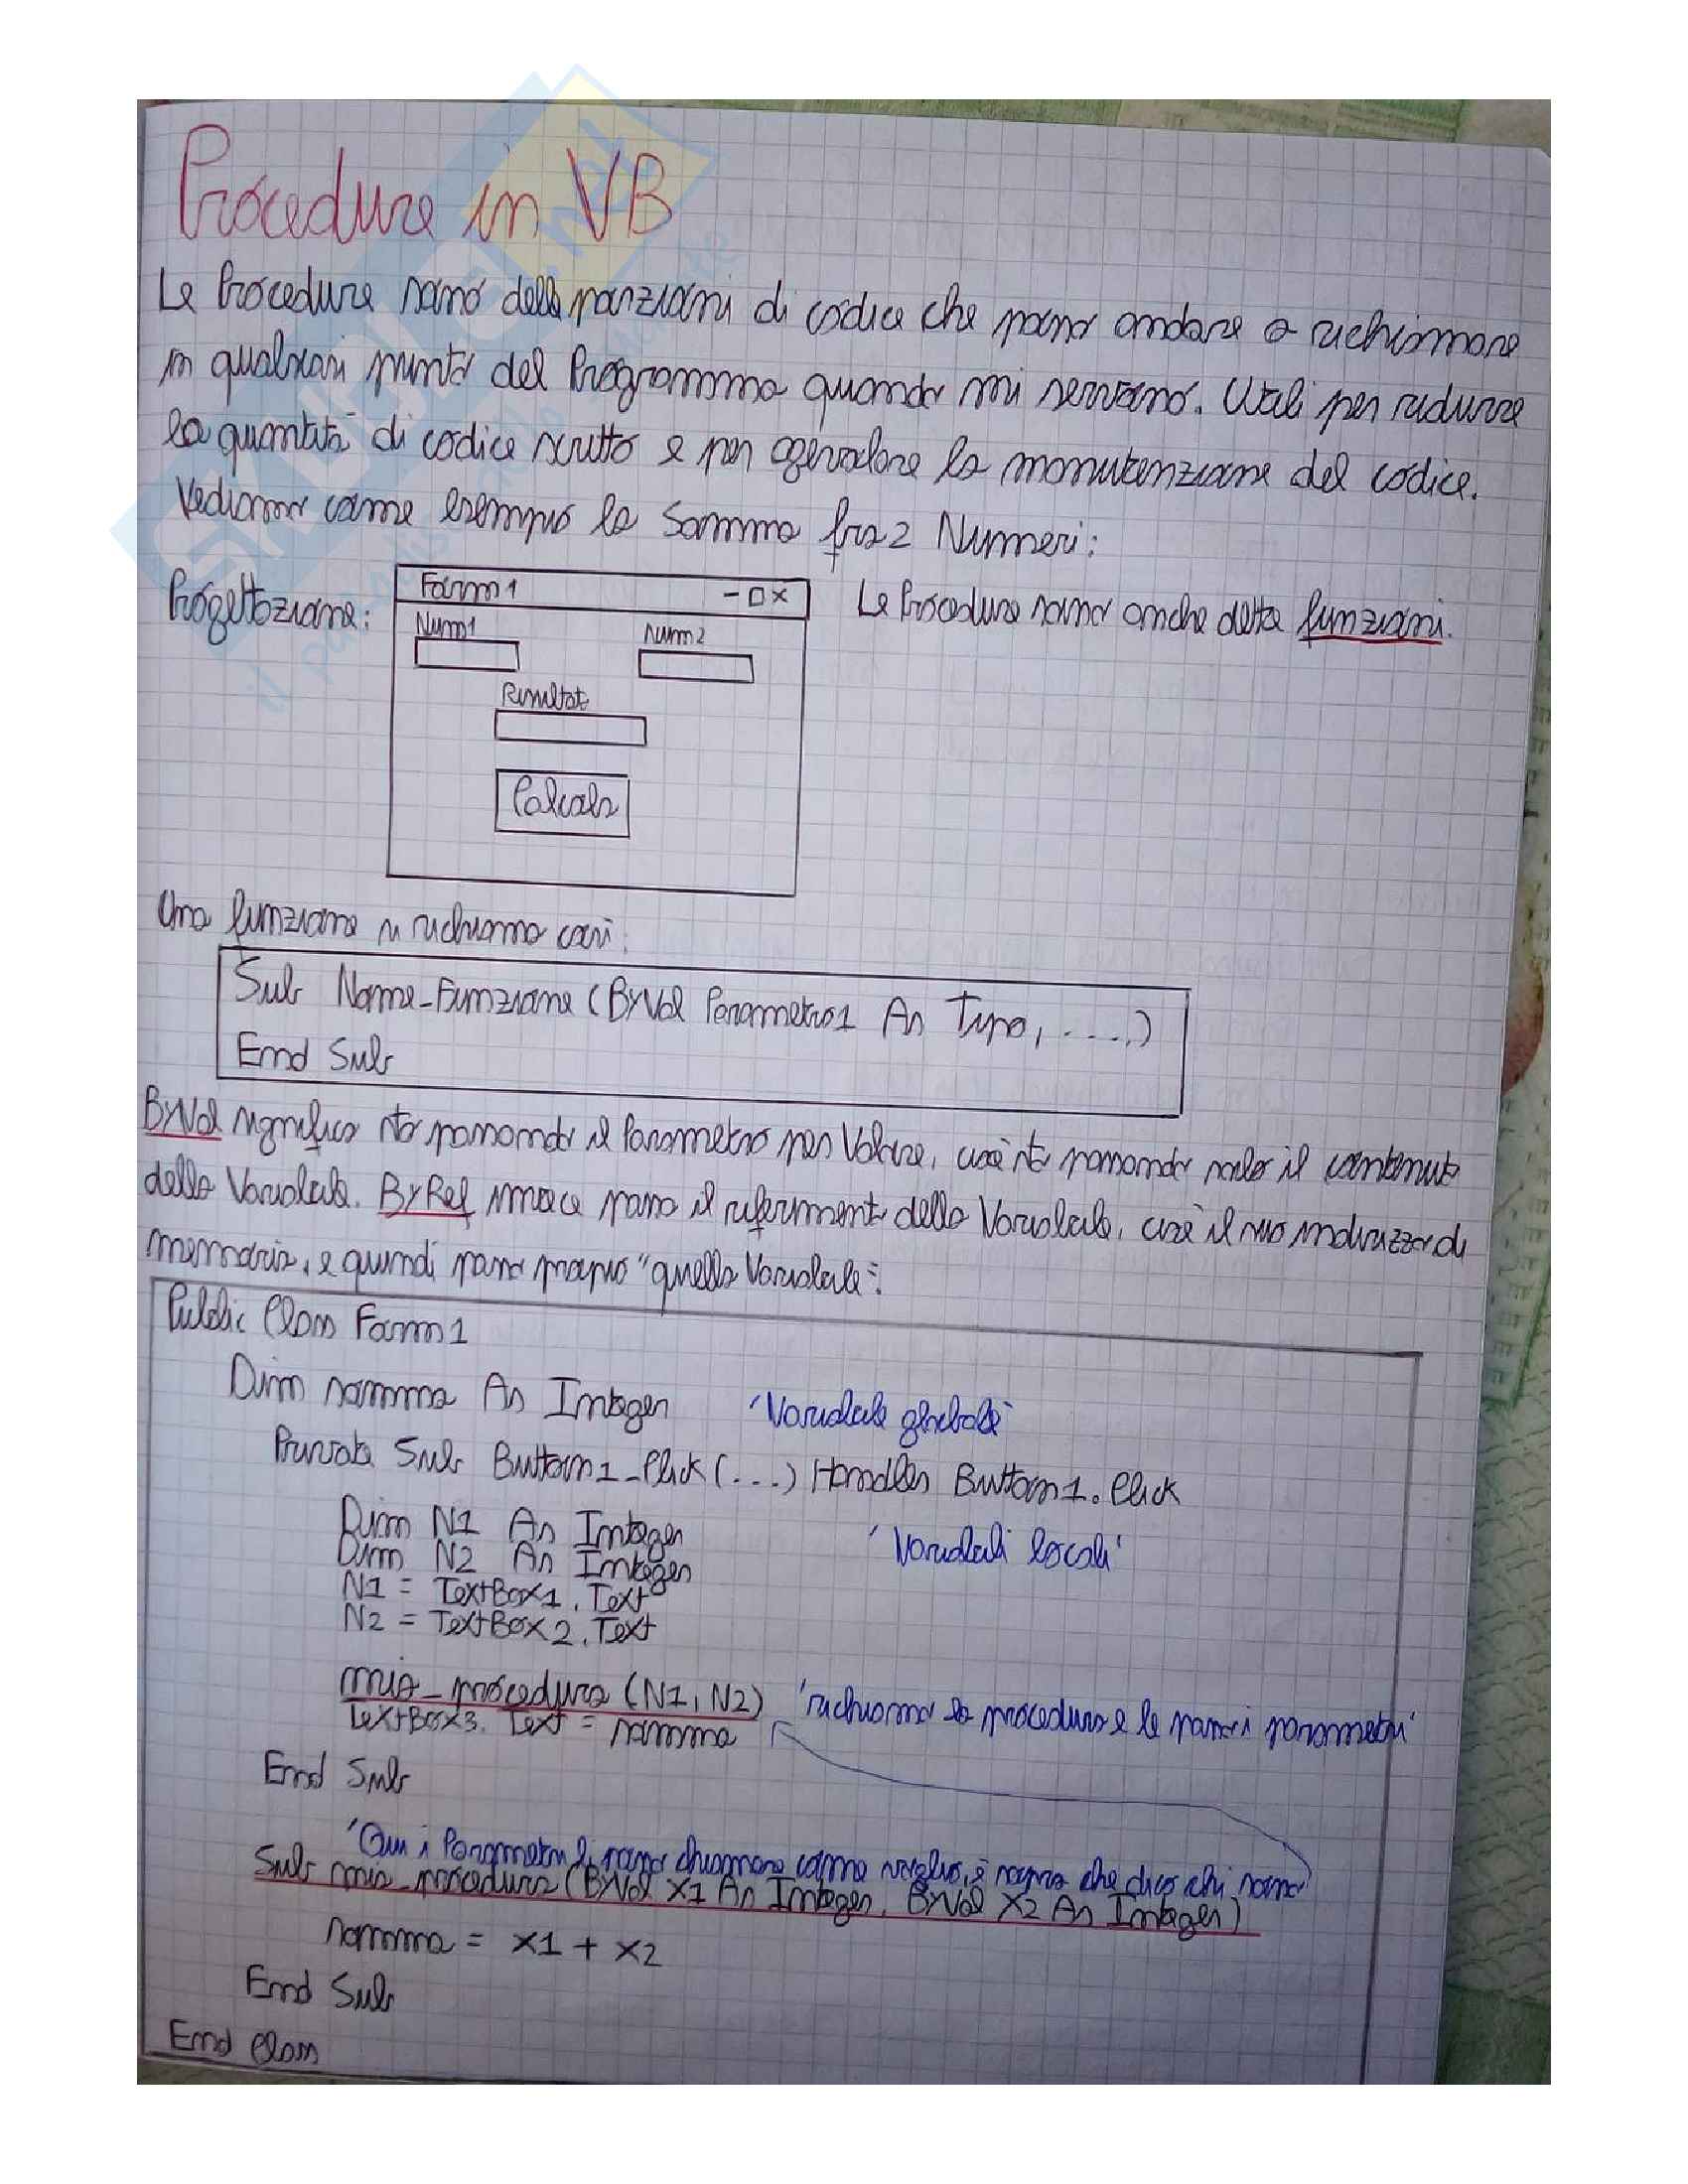 Procedure in VB
Le Procedure sono delle porzioni di codice che posso andare a richiamare
in qualsiasi punto del Programma quando mi servono. Utili per ridurre
la quantità di codice scritto e per agevolare la manutenzione del codice.
Vediamo come esempio la Somma fra 2 Numeri:
Progettazione:
Form1 - □ ×
Num1
Num2
Risultato
Calcola
Le Procedure sono anche dette funzioni.
Una funzione si richiama così:
Sub Nome_Funzione (ByVal Parametro1 As Tipo, ....)
End Sub
ByVal significa sto passando il Parametro per Valore, cioè sto passando solo il contenuto
della Variabile. ByRef invece passo il riferimento della Variabile, cioè il suo indirizzo di
memoria, e quindi passo proprio "quella Variabile".
Public Class Form1
Dim somma As Integer 'Variabile globale'
Private Sub Button1_Click (...) Handles Button1.Click
Dim N1 As Integer 'Variabili locali'
Dim N2 As Integer
N1 = TextBox1.Text
N2 = TextBox2.Text
mia_procedura (N1, N2) 'richiamo la procedura e le passo i parametri'
TextBox3.Text = somma
End Sub
'Qui i Parametri li posso chiamare come voglio, è sopra che dico chi sono
Sub mia_procedura (ByVal X1 As Integer, ByVal X2 As Integer)
somma = X1 + X2
End Sub
End Class